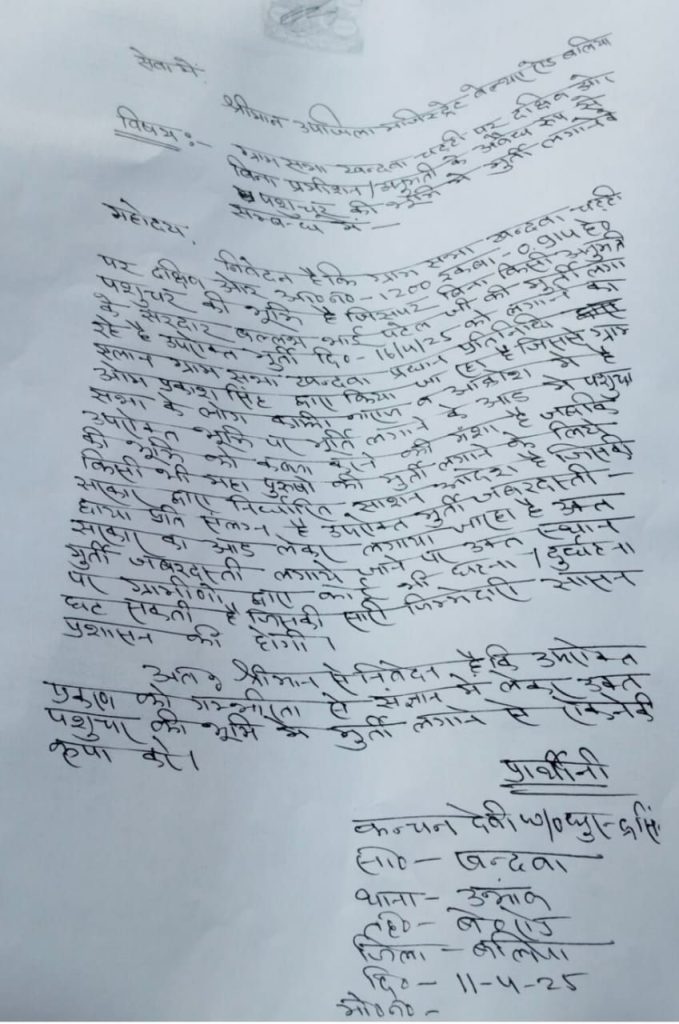 सेवा में,
श्रीमान उपजिला मजिस्ट्रेट बेल्थरा रोड बलिया
विषय:- ग्राम सभा खन्दवा चट्टी पर दक्षिण ओर
बिना परमीशन/अनुमति के अवैध रूप से
पशुचर की भूमि में मूर्ति लगाने के
सम्बन्ध में —
महोदय,
निवेदन है कि ग्राम सभा खन्दवा चट्टी
पर दक्षिण ओर आ०न०-1200 रकबा-0.914 हे०
पशुचर की भूमि है जिसपर बिना किसी अनुमति
के सरदार बल्लभ भाई पटेल जी की मूर्ति लगा
रहे है उपरोक्त मूर्ति दि०-16/4/25 को लगाने का
एलान ग्राम सभा खन्दवा प्रधान प्रतिनिधि
ओम प्रकाश सिंह द्वारा किया जा रहा है जिससे ग्राम
सभा के लोग काफी नाराज व आक्रोश में है
उपरोक्त भूमि पर मूर्ति लगाने के आड़ में पशुचर
की भूमि को कब्जा करने की मंशा है जबकि
किसी भी महा पुरुषो की मूर्ति लगाने के लिये
सरकार द्वारा निर्धारित साशन आदेश है जिसकी
छाया प्रति संलग्न है उपरोक्त मूर्ति जबरदस्ती —
सरकार का आड लेकर लगाया जा रहा है उक्त
मूर्ति जबरदस्ती लगाये जाने पर उक्त स्थान
पर ग्रामीणो द्वारा कोई भी घटना/दुर्घटना
घट सकती है जिसकी सारी जिम्मेदारी सासन
प्रशासन की होगी।
अतः श्रीमान से निवेदन है कि उपरोक्त
प्रकरण को गम्भीरता से संज्ञान में लेकर उक्त
पशुचर की भूमि में मूर्ति लगाने से रोकने की
कृपा करे।
प्रार्थीनी
कन्चन देवी w/o
सा०- खन्दवा
थाना- उभांव
तह०- बे०रोड
जिला- बलिया
दि०- 11-4-25
मो०न०-